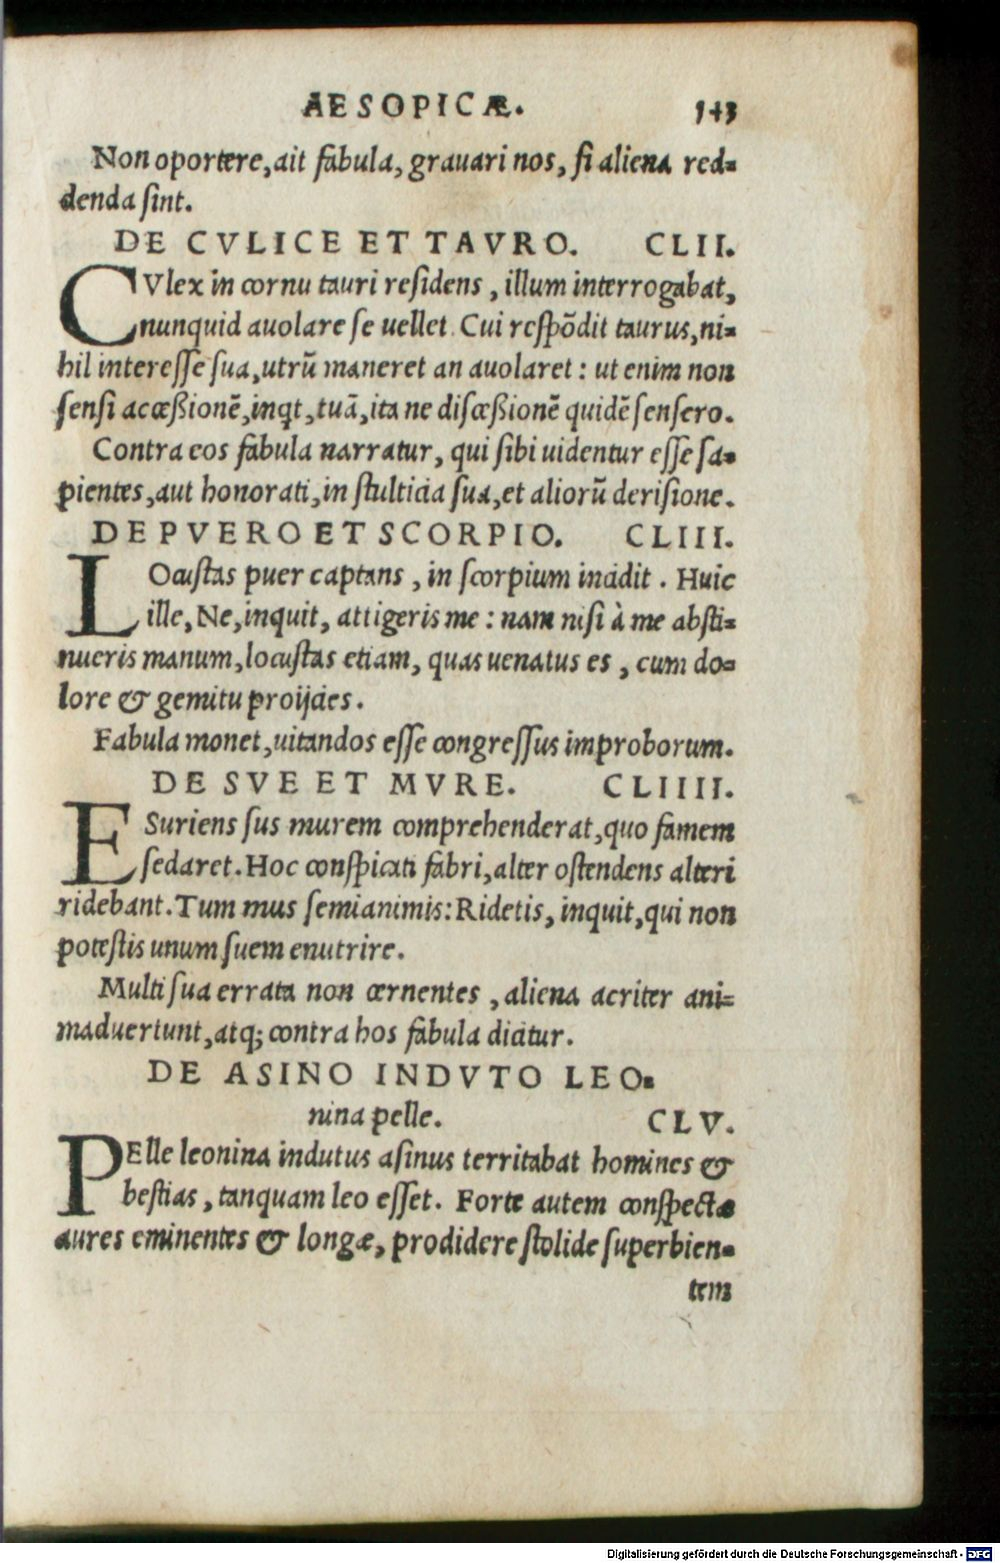 AESOPICÆ. 143
Non oportere, ait fabula, grauari nos, si aliena red-
denda sint.
DE CVLICE ET TAVRO. CLII.
CVlex in cornu tauri residens, illum interrogabat,
nunquid auolare se uellet. Cui respõdit taurus, ni-
hil interesse sua, utrũ maneret an auolaret: ut enim non
sensi accessionẽ, inqt, tuã, ita ne discessionẽ quidẽ sensero.
Contra eos fabula narratur, qui sibi uidentur esse sa-
pientes, aut honorati, in stulticia sua, et aliorũ derisione.
DE PVERO ET SCORPIO. CLIII.
LOcustas puer captans, in scorpium incidit. Huic
ille, Ne, inquit, attigeris me: nam nisi à me absti-
nueris manum, locustas etiam, quas uenatus es, cum do-
lore & gemitu proijcies.
Fabula monet, uitandos esse congressus improborum.
DE SVE ET MVRE. CLIIII.
ESuriens sus murem comprehenderat, quo famem
sedaret. Hoc conspicati fabri, alter ostendens alteri
ridebant. Tum mus semianimis: Ridetis, inquit, qui non
potestis unum suem enutrire.
Multi sua errata non cernentes, aliena acriter ani-
maduertunt, atq; contra hos fabula dicitur.
DE ASINO INDVTO LEO-
nina pelle. CLV.
PElle leonina indutus asinus territabat homines &
bestias, tanquam leo esset. Forte autem conspectæ
aures eminentes & longæ, prodidere stolide superbien-
tem
Digitalisierung gefördert durch die Deutsche Forschungsgemeinschaft - DFG